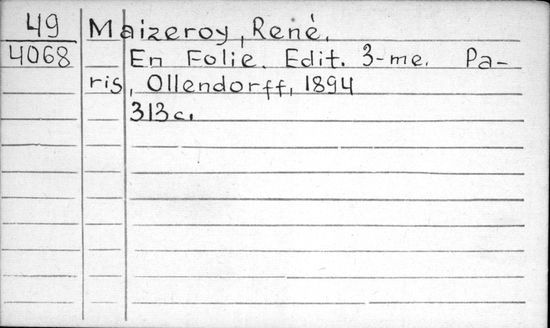 49 Maizeroy, Renè.
4068 En Folie. Edit. 3-me. Pa-
ris, Ollendorff, 1894
313c.